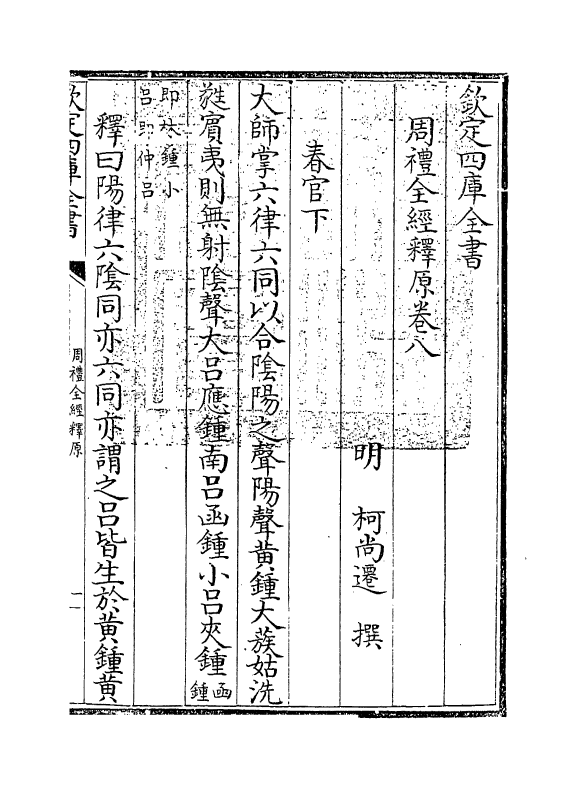 欽定四庫全書
周禮全經釋原卷八
明 柯尚遷 撰
春官下
大師掌六律六同以合陰陽之聲陽聲黃鍾大蔟姑洗
蕤賓夷則無射陰聲大呂應鍾南呂函鍾小呂夾鍾函鍾
即林鍾小呂即仲呂
釋曰陽律六陰同亦六同亦謂之呂皆生於黃鍾黃
欽定四庫全書
周禮全經釋原
一